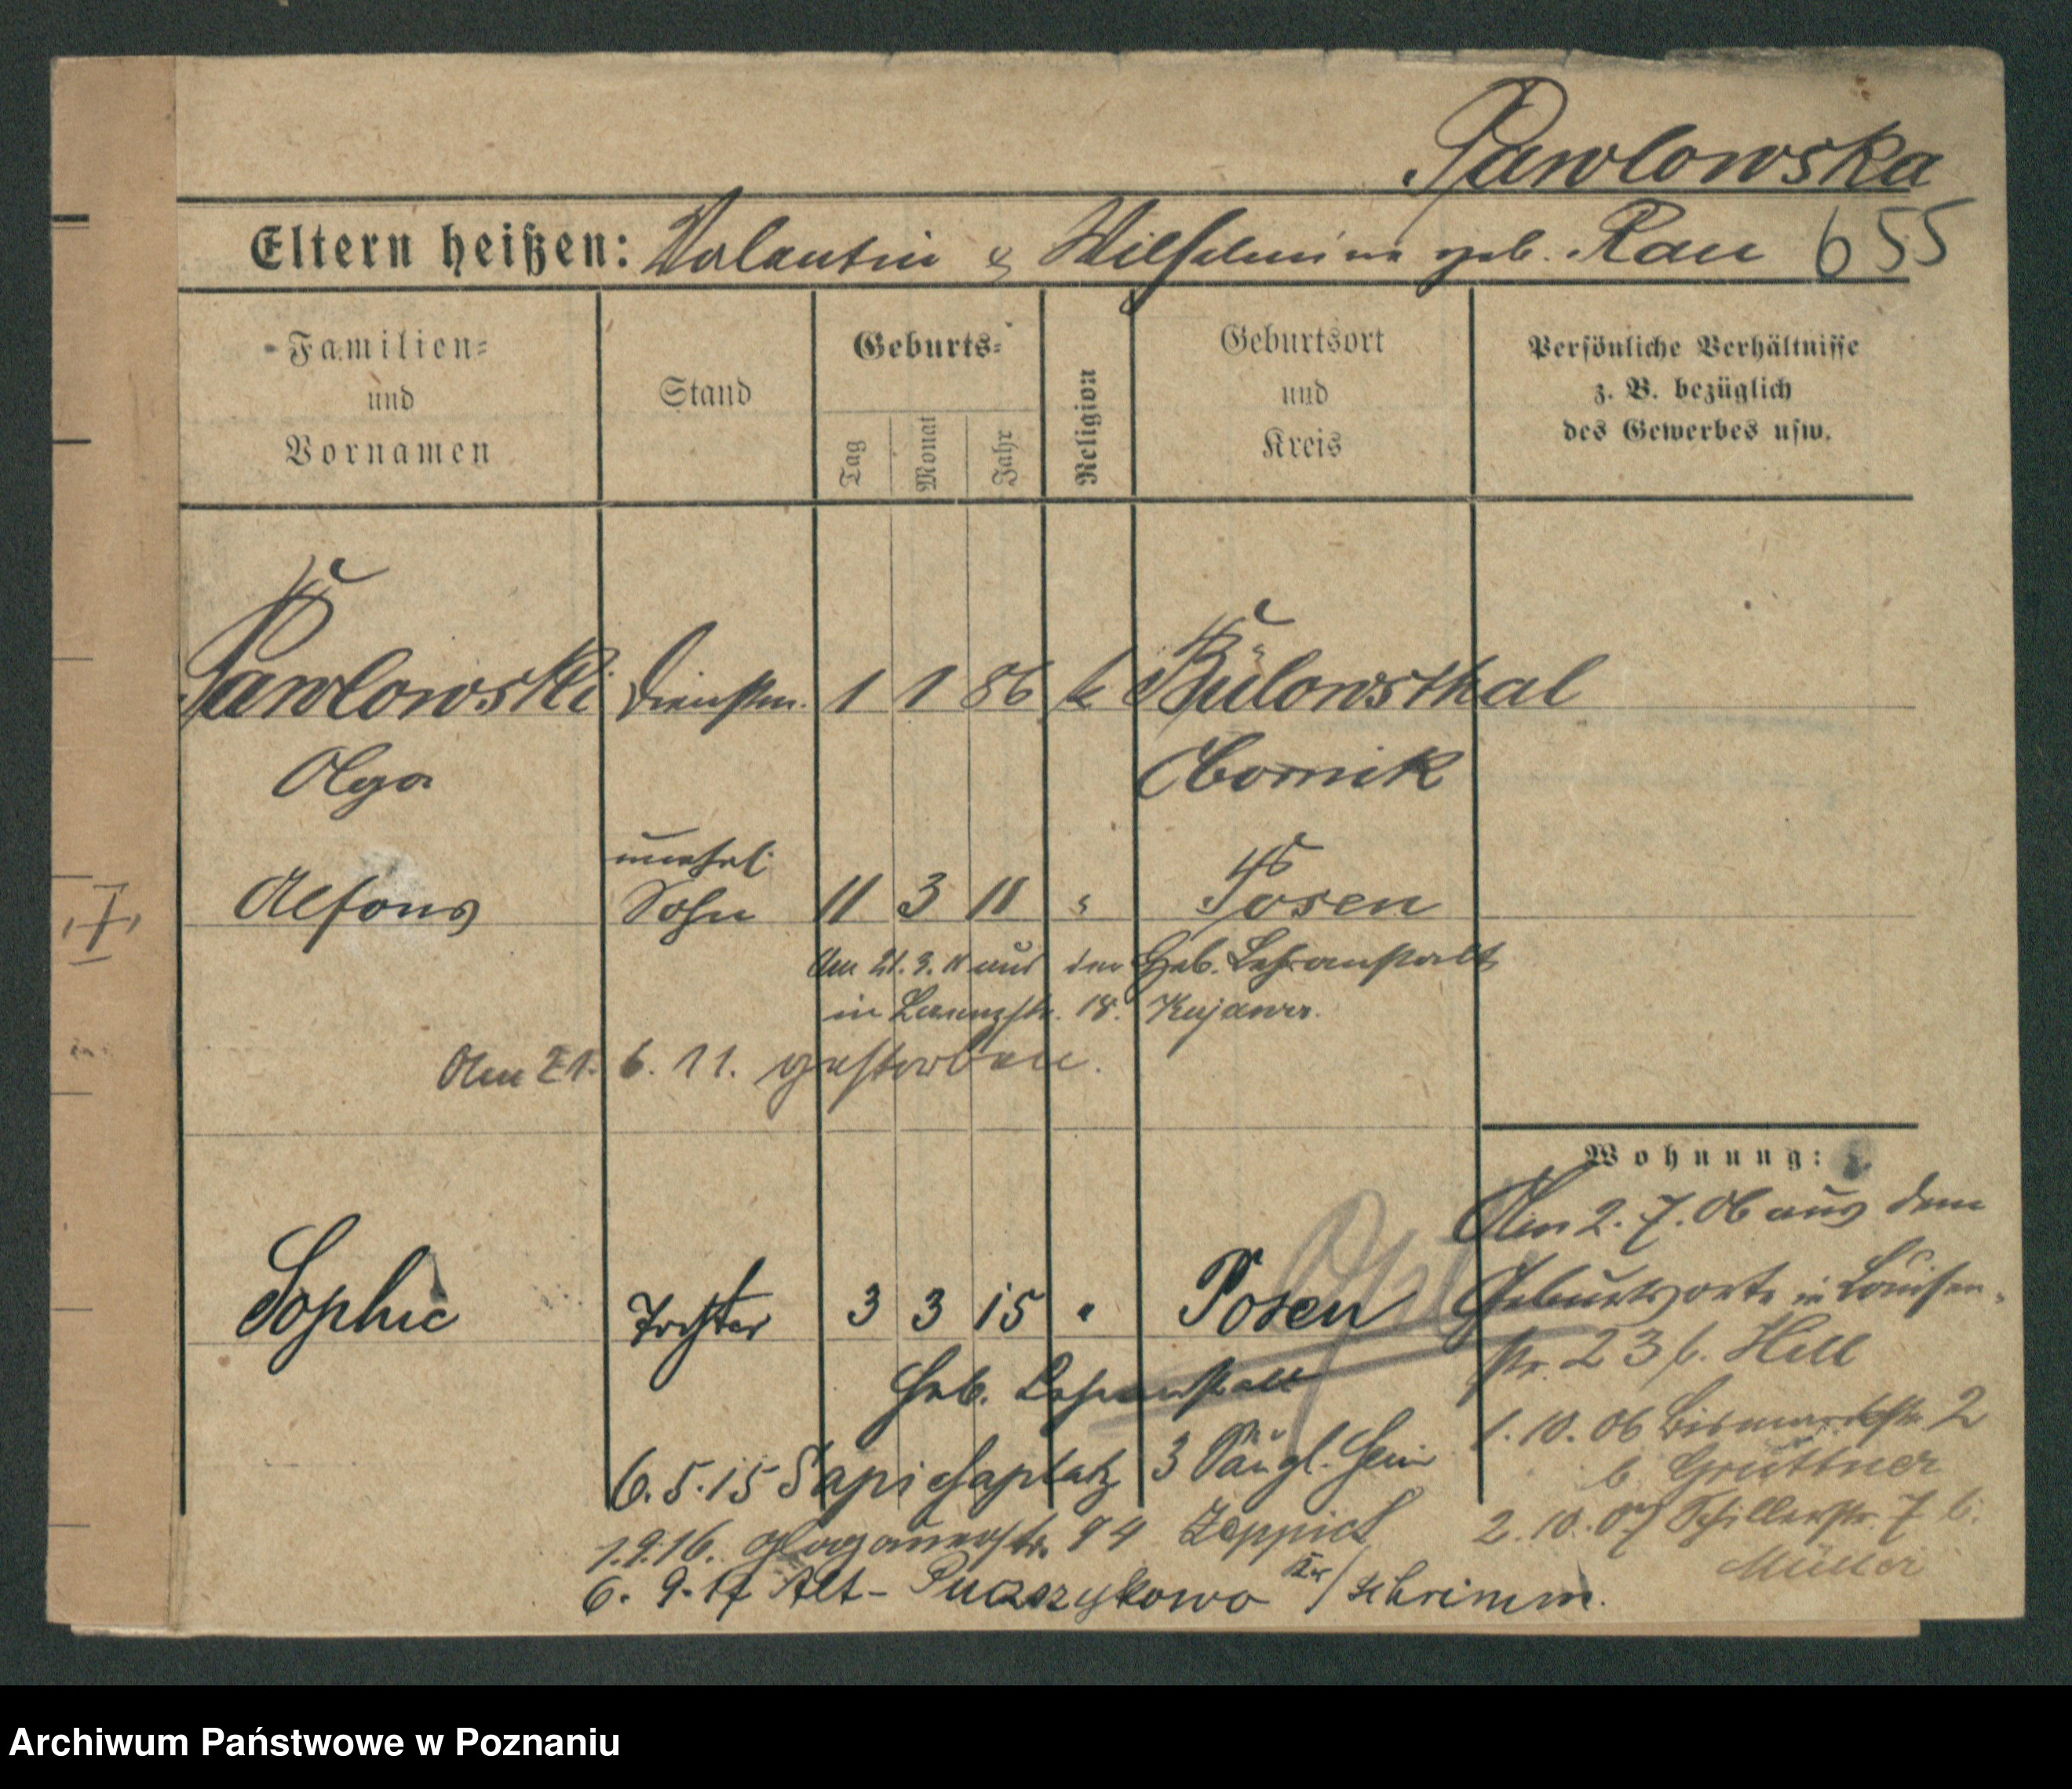 Pawlowska
Eltern heißen: Valentin & Wilhelmine geb. Rau 655
Familien=
und
Vornamen
Stand
Geburts=
Tag
Monat
Jahr
Religion
Geburtsort
und
Kreis
Persönliche Verhältnisse
z. B. bezüglich
des Gewerbes usw.
Pawlowski Dienstm. 1 1 86 k Bülowsthal
Olga Obornik
unehel.
Alfons Sohn 11 3 11 " Posen
Am 21.3.11 aus der Heb. Lehranstalt
in 18. Kujawa.
Am 21. 6. 11. gestorben.
Wohnung:
Am 2. 7. 06 aus dem
Geburtsorte in Louisen-
str. 23 b. Hill
1. 10. 06 Bismarckstr. 2
b. Grüttner
2. 10. 07 Schillerstr. 7 b.
Müller
Sophie Tochter 3 3 15 " Posen
Heb. Lehranstalt
6. 5. 15 Sapiehaplatz 3 Säugl. Heim
1.9.16. Glogauerstr. 94
6. 9. 17 Alt- Puszczykowo Kr/Schrimm.
7
Archiwum Państwowe w Poznaniu